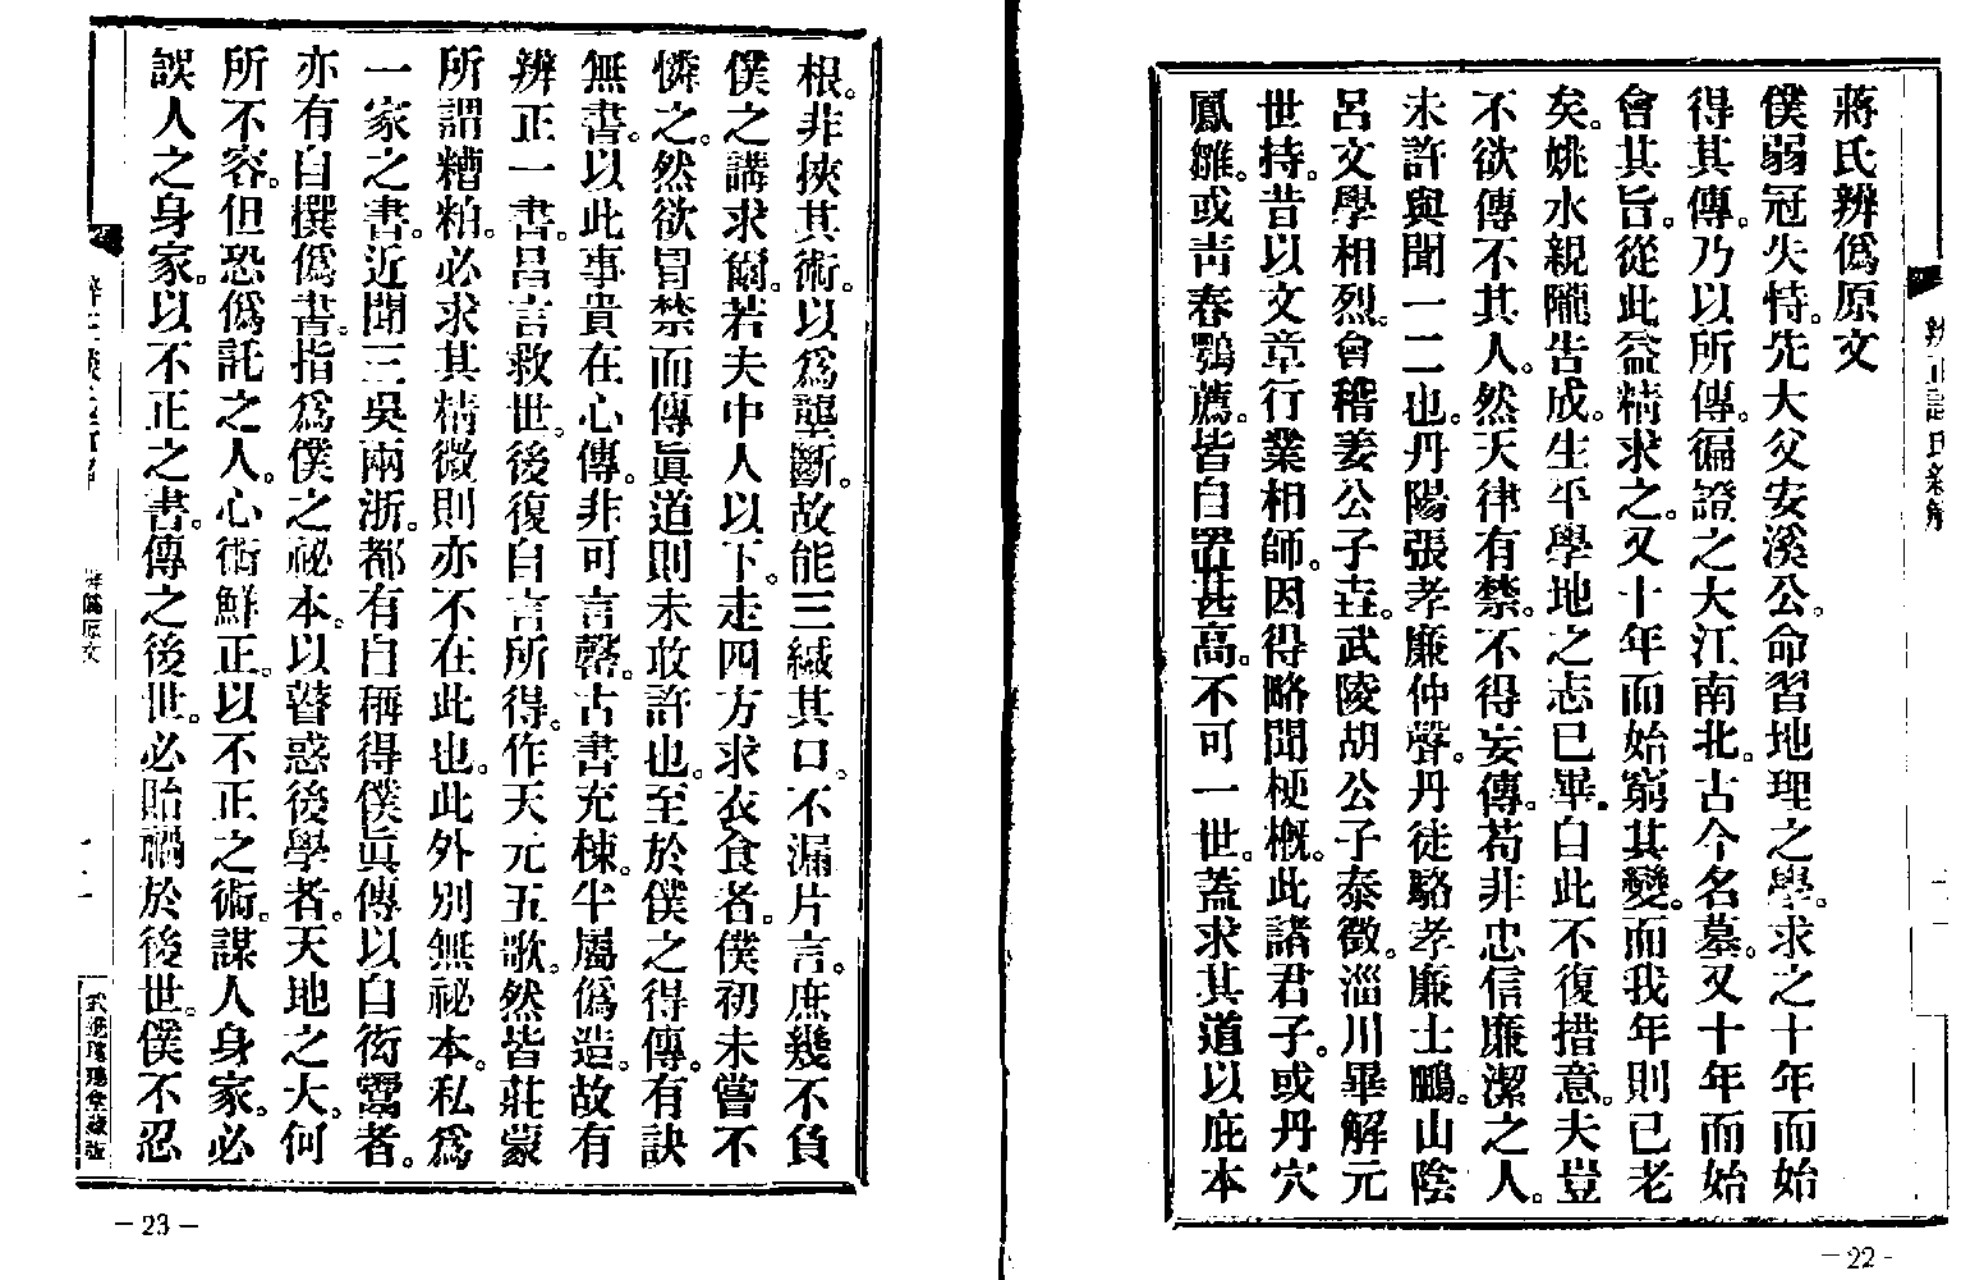 蔣氏辨僞原文
僕弱冠失恃。先大父安溪公。命習地理之學。求之十年而始
得其傳。乃以所傳。徧證之大江南北。古今名墓。又十年而始
會其旨。從此益精求之。又十年而始窮其變。而我年則已老
矣。姚水親隴告成。生平學地之志已畢。自此不復措意。夫豈
不欲傳不其人。然天律有禁。不得妄傳。苟非忠信廉潔之人。
未許與聞一二也。丹陽張孝廉仲聲。丹徒駱孝廉士鵬。山陰
呂文學相烈。會稽姜公子垚。武陵胡公子泰徵。淄川畢解元
世持。昔以文章行業相師。因得略聞梗概。此諸君子。或丹穴
鳳雛。或靑春鶚薦。皆自置甚高。不可一世。蓋求其道以庇本
根。非挾其術。以爲壟斷。故能三緘其口。不漏片言。庶幾不負
僕之講求爾。若夫中人以下。走四方求衣食者。僕初未嘗不
憐之。然欲冒禁而傳眞道則未敢許也。至於僕之得傳。有訣
無書。以此事貴在心傳。非可言罄。古書充棟。半屬僞造。故有
辨正一書。昌言救世。後復自言所得。作天元五歌。然皆莊蒙
所謂糟粕。必求其精微則亦不在此也。此外別無祕本。私爲
一家之書。近聞三吳兩浙。都有自稱得僕眞傳以自衒鬻者。
亦有自撰僞書。指爲僕之祕本。以瞽惑後學者。天地之大。何
所不容。但恐僞託之人。心術鮮正。以不正之術。謀人身家。必
誤人之身家。以不正之書。傳之後世。必貽禍於後世。僕不忍
辨僞原文
－22－
－23－